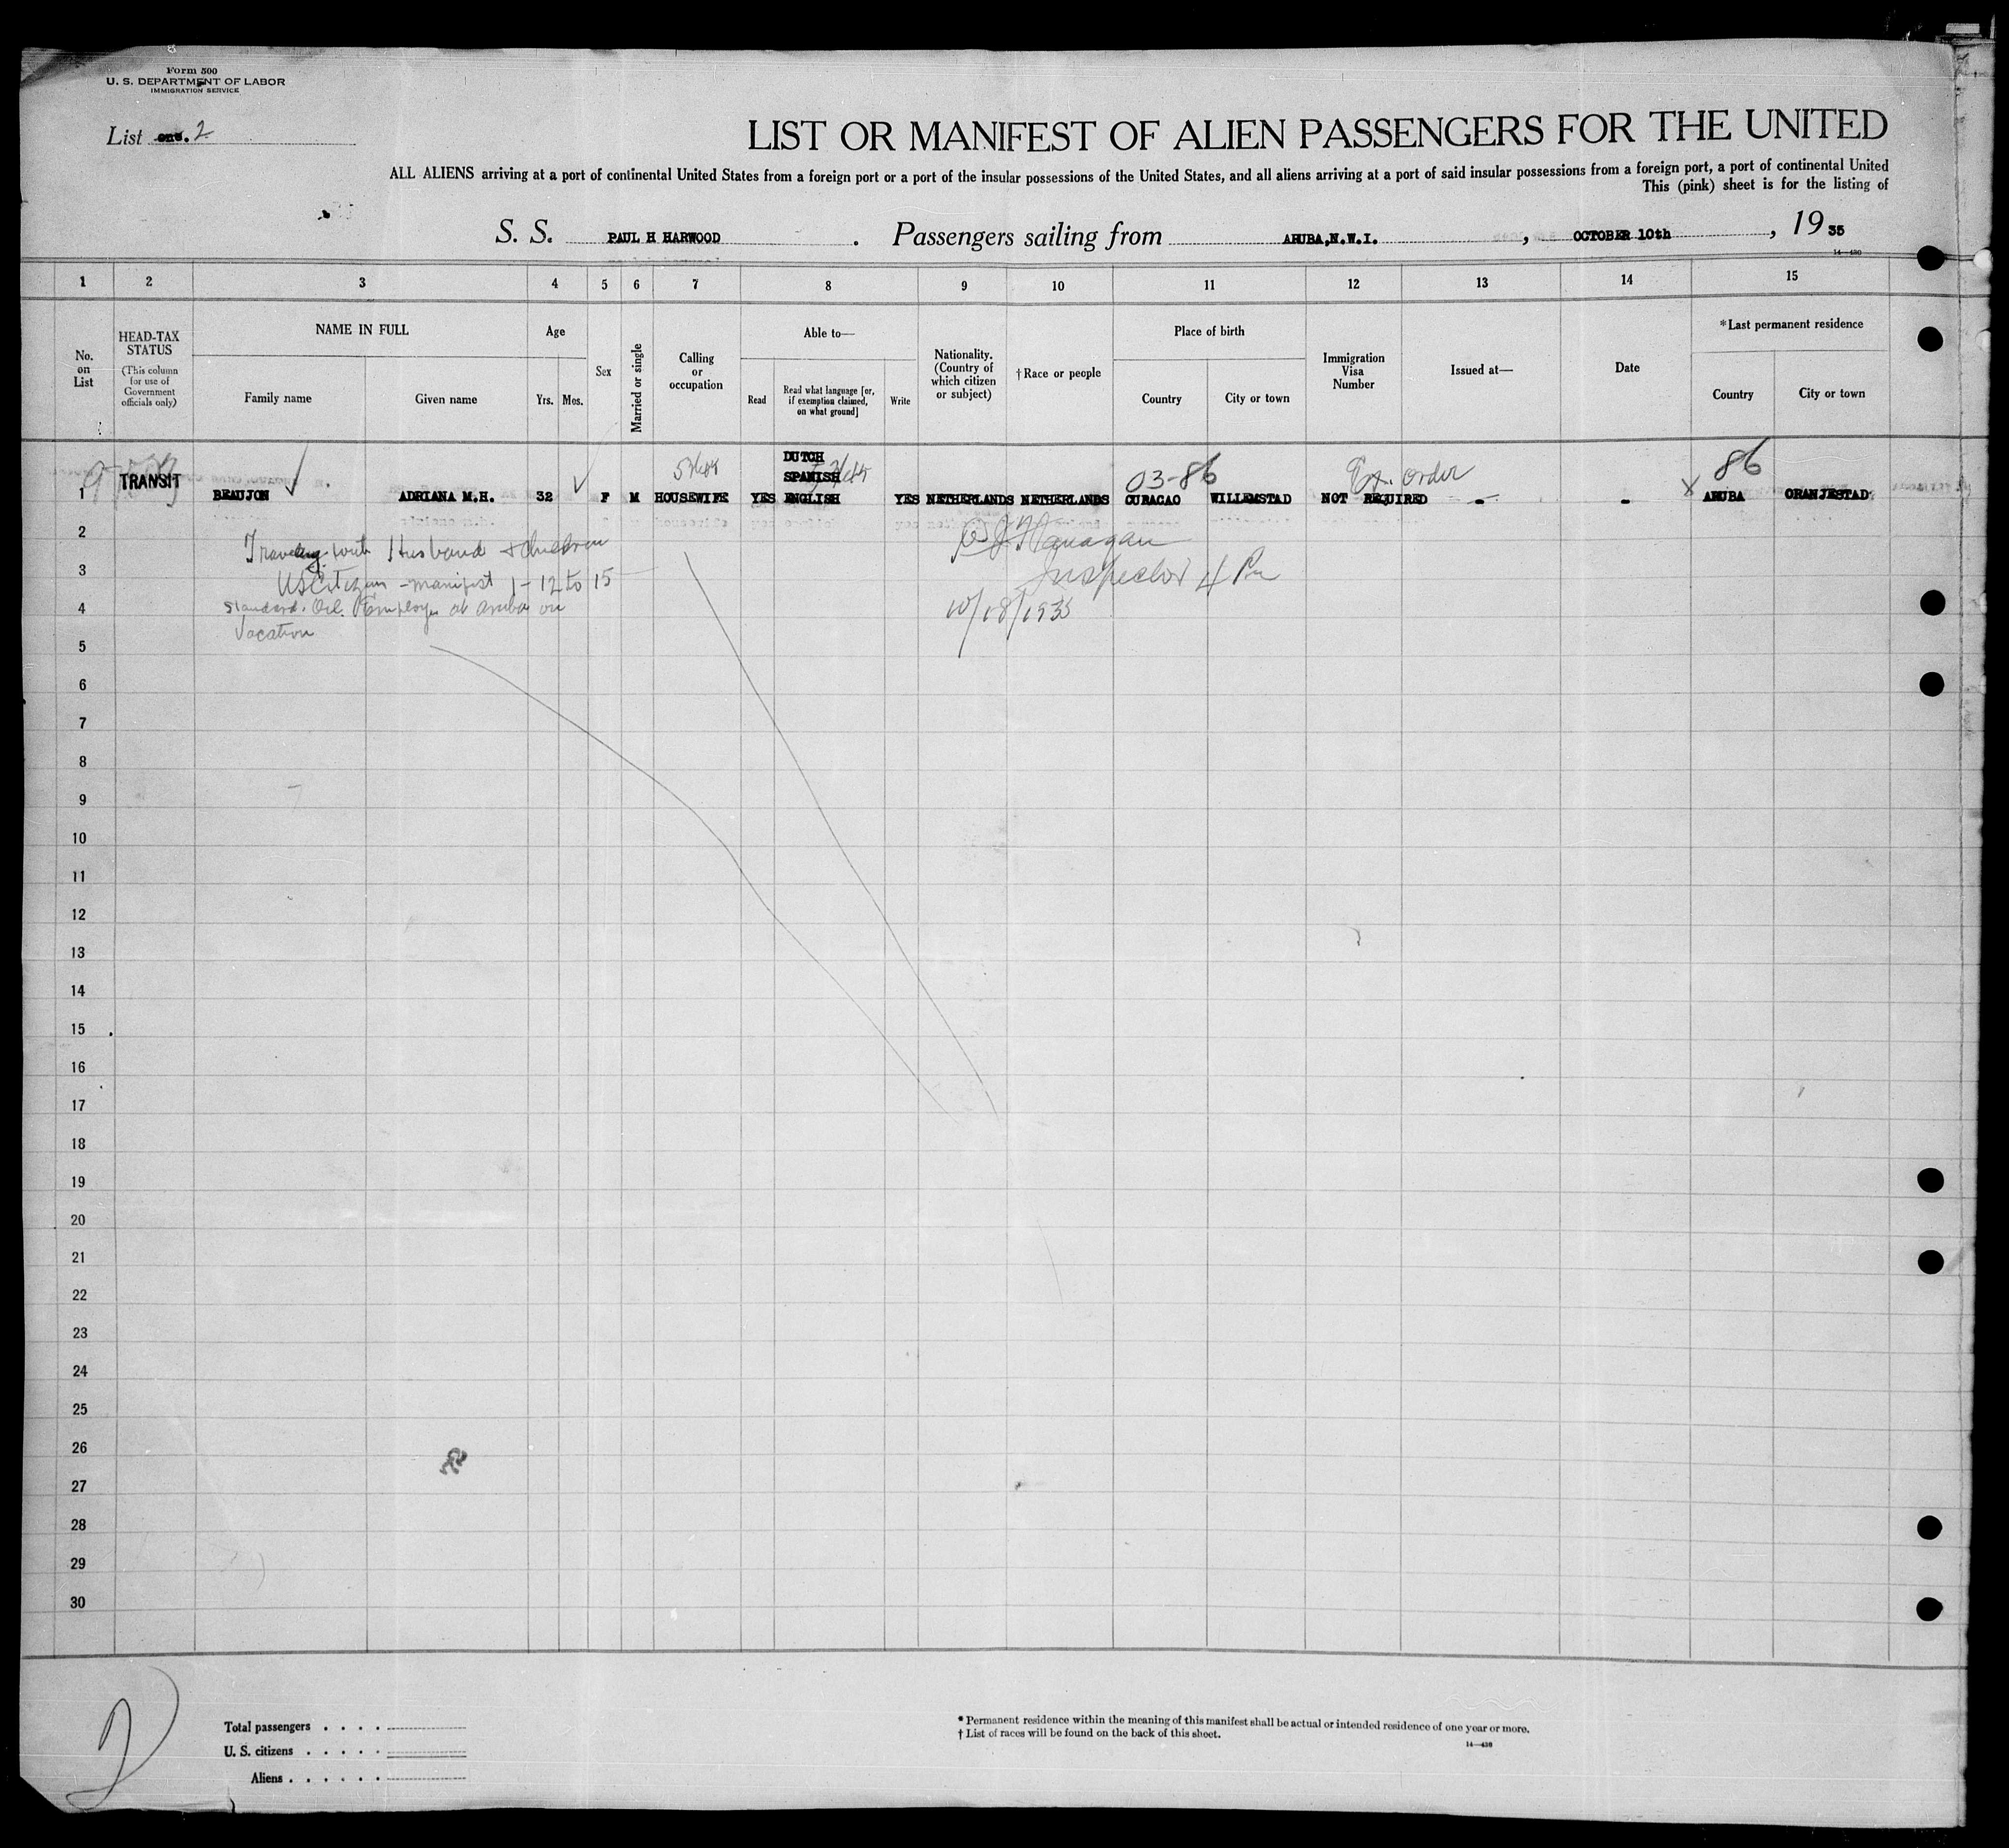 Form 500
U. S. DEPARTMENT OF LABOR
IMMIGRATION SERVICE
List one. 2
LIST OR MANIFEST OF ALIEN PASSENGERS FOR THE UNITED
ALL ALIENS arriving at a port of continental United States from a foreign port or a port of the insular possessions of the United States, and all aliens arriving at a port of said insular possessions from a foreign port, a port of continental United
This (pink) sheet is for the listing of
S. S. PAUL H HARWOOD . Passengers sailing from ARUBA,N.W.I. , OCTOBER 10th , 19 35
14—430
1 2 3 4 5 6 7 8 9 10 11 12 13 14 15
No. on List
HEAD-TAX STATUS
(This column for use of Government officials only)
NAME IN FULL
Family name Given name
Age
Yrs. Mos.
Sex
Married or single
Calling or occupation
Able to—
Read
Read what language [or, if exemption claimed, on what ground]
Write
Nationality. (Country of which citizen or subject)
†Race or people
Place of birth
Country City or town
Immigration Visa Number
Issued at—
Date
*Last permanent residence
Country City or town
DUTCH
SPANISH
03-86 Ex. Order 86
1 TRANSIT BEAUJON ADRIANA M.H. 32 F M HOUSEWIFE YES ENGLISH YES NETHERLANDS NETHERLANDS CURACAO WILLEMSTAD NOT REQUIRED - - X ARUBA ORANJESTAD
2
Traveling with Husband + children
3
US Citizen - manifest 1 - 12 to 15
Inspector
4
Standard Oil Employe at Aruba on
10/18/1935
Vacation
5
6
7
8
9
10
11
12
13
14
15
16
17
18
19
20
21
22
23
24
25
26
27
28
29
30
2
Total passengers . . . .
U. S. citizens . . . . .
Aliens . . . . . .
* Permanent residence within the meaning of this manifest shall be actual or intended residence of one year or more.
† List of races will be found on the back of this sheet.
14—430